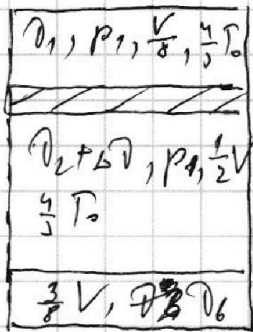 ν₁, p₁, V/8, 4/3 T₀
ν₂ + Δν, p₁, 1/2 V
4/3 T₀
3/8 V, ν₆